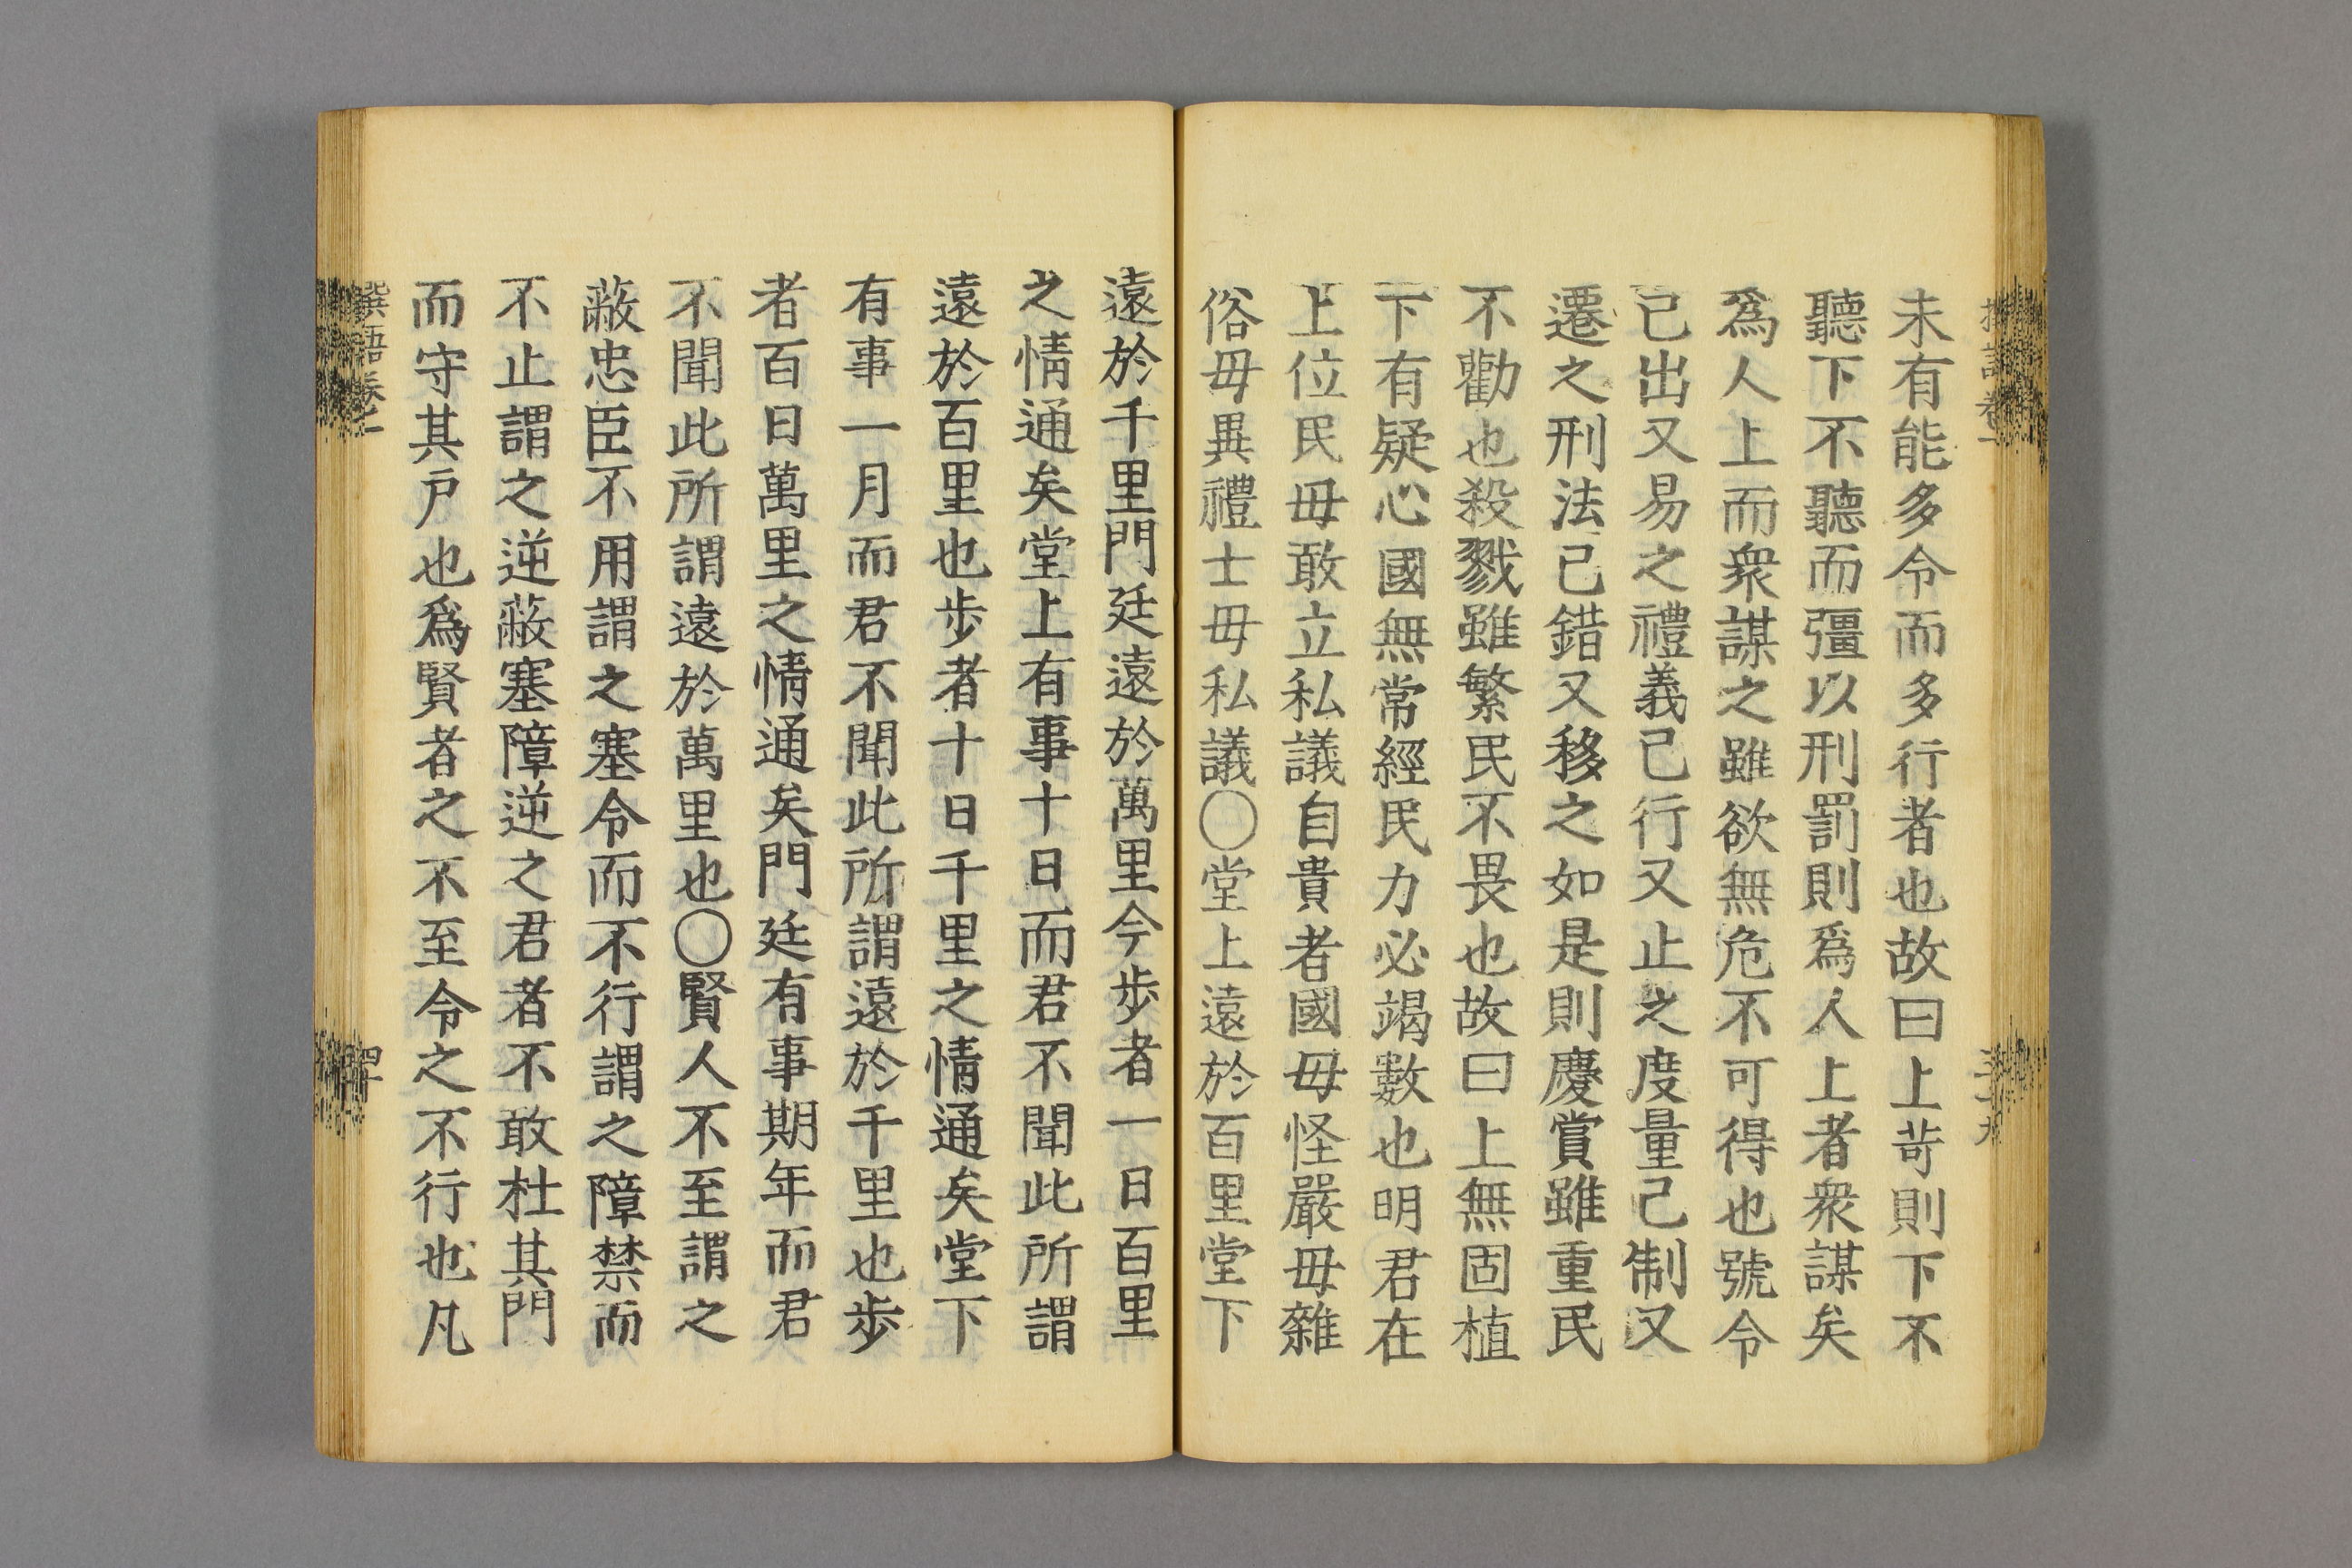 未有能多令而多行者也故曰上苛則下不
聽下不聽而彊以刑罰則爲人上者衆謀矣
爲人上而衆謀之雖欲無危不可得也號令
已出又易之禮義已行又止之度量已制又
遷之刑法已錯又移之如是則慶賞雖重民
不勸也殺戮雖繁民不畏也故曰上無固植
下有疑心國無常經民力必竭數也明君在
上位民毋敢立私議自貴者國毋怪嚴毋雜
俗毋異禮士毋私議〇堂上遠於百里堂下
遠於千里門廷遠於萬里今步者一日百里
之情通矣堂上有事十日而君不聞此所謂
遠於百里也步者十日千里之情通矣堂下
有事一月而君不聞此所謂遠於千里也步
者百日萬里之情通矣門廷有事期年而君
不聞此所謂遠於萬里也〇賢人不至謂之
蔽忠臣不用謂之塞令而不行謂之障禁而
不止謂之逆蔽塞障逆之君者不敢杜其門
而守其戶也爲賢者之不至令之不行也凡
撰語卷一
四十